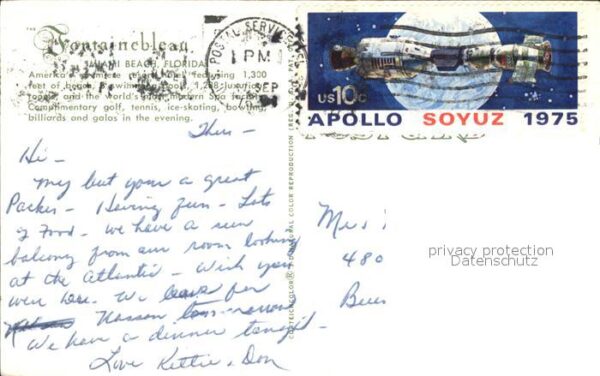 THE
Fontainebleau
MIAMI BEACH, FLORIDA
America's resort featuring 1,300
feet of beach, swimming pools, 1,208 luxurious
rooms and the world's most modern Spa
Complimentary golf, tennis, ice-skating, bowling,
billiards and galas in the evening.
POSTAL SERVICE
1 PM
SEP
US 10c
APOLLO SOYUZ 1975
POST CARD
Thurs-
Hi-
My but your a great
Packer- Having fun- Lots
of Food. We have a sun
balcony from our room looking
at the Atlantic- Wish you
were here. We leave for
Nassau tomorrow
We have a dinner tonight-
Love Kettie & Don
NATURAL COLOR REPRODUCTION
Mr
480
privacy protection
Datenschutz